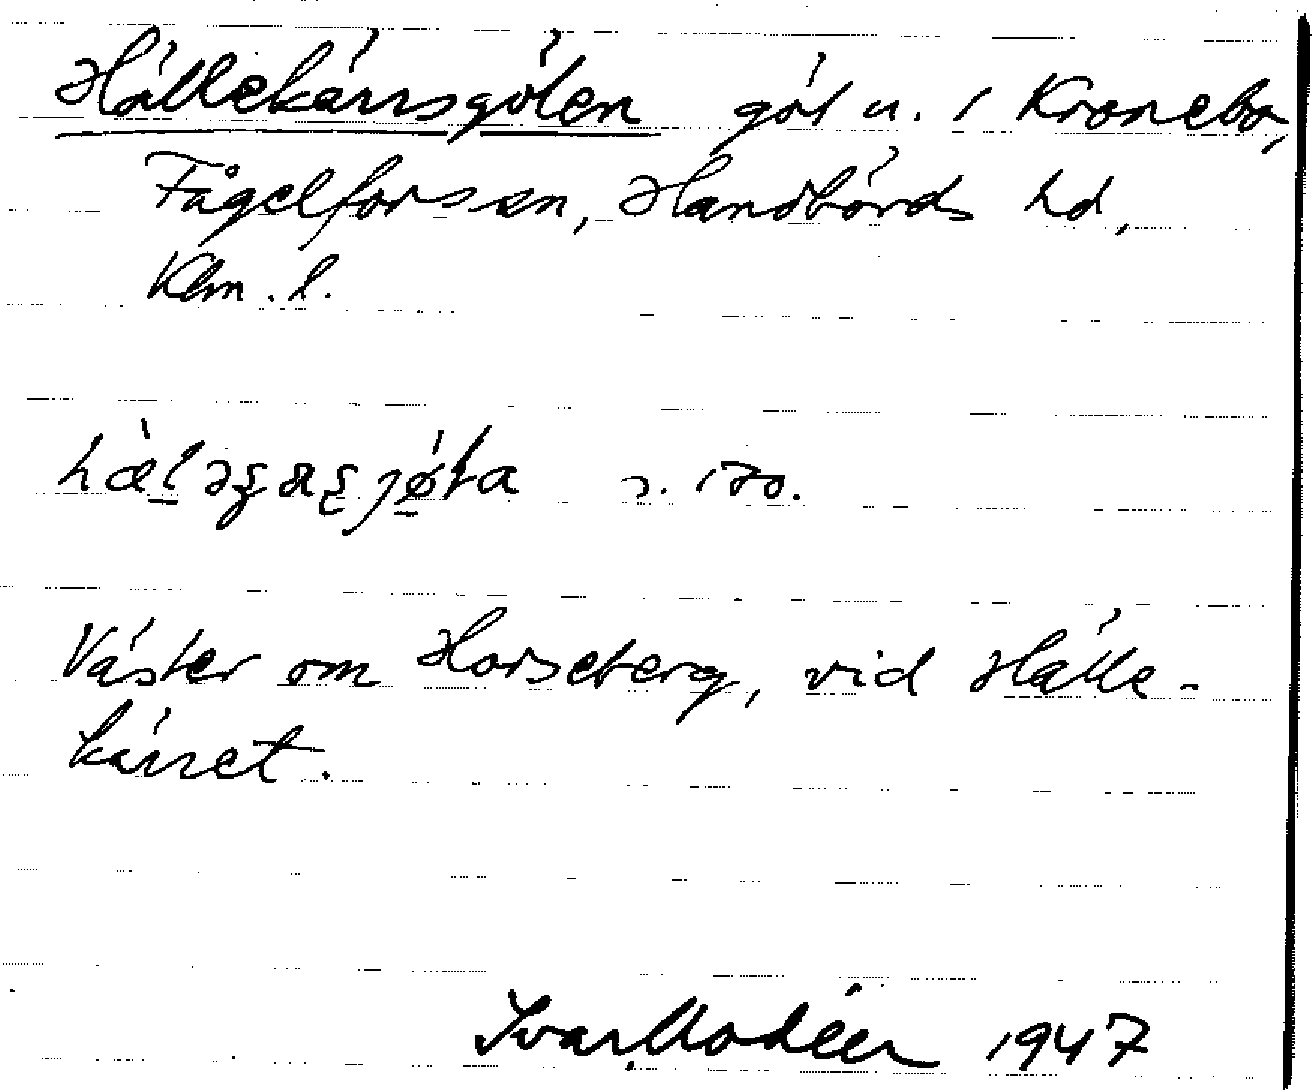 Hällekärrsgölen göl u. i Kronebo,
Fågelforssn, Handbörds hd,
Klm. l.
Väster om Horseberg, vid Hälle-
kärret.
Ivar Modéer 1947